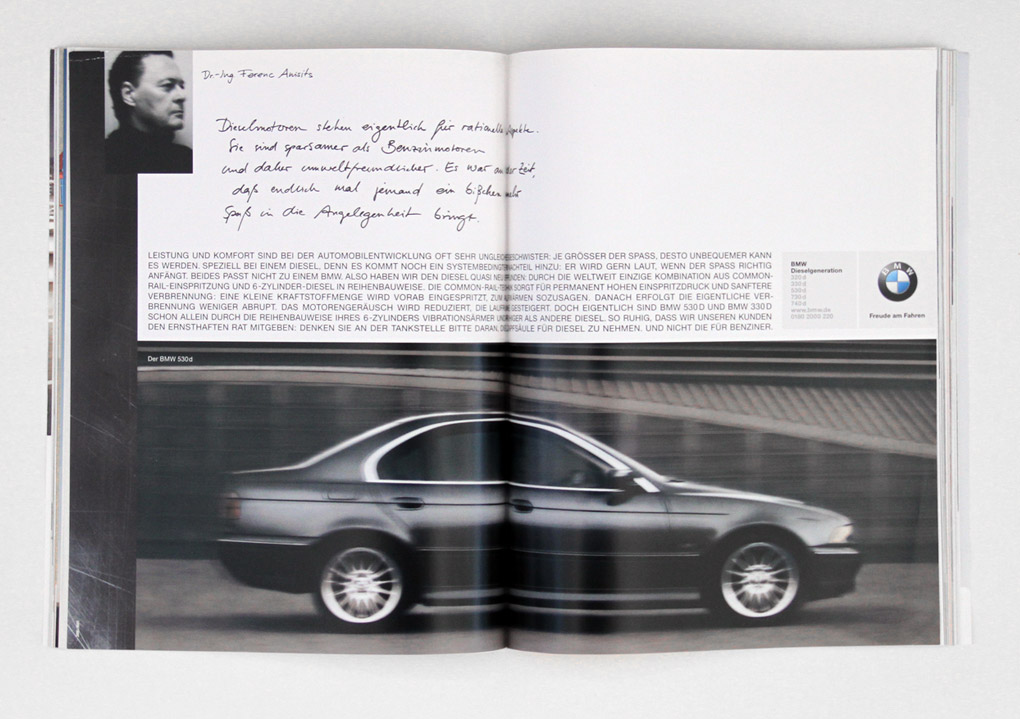 Dr.-Ing Ferenc Anisits
Dieselmotoren stehen eigentlich für rationelle Aspekte.
Sie sind sparsamer als Benzinmotoren
und daher umweltfreundlicher. Es war an der Zeit,
daß endlich mal jemand ein bißchen mehr
Spaß in die Angelegenheit bringt.
LEISTUNG UND KOMFORT SIND BEI DER AUTOMOBILENTWICKLUNG OFT SEHR UNGLEICHE GESCHWISTER: JE GRÖSSER DER SPASS, DESTO UNBEQUEMER KANN
ES WERDEN. SPEZIELL BEI EINEM DIESEL, DENN ES KOMMT NOCH EIN SYSTEMBEDINGTER NACHTEIL HINZU: ER WIRD GERN LAUT, WENN DER SPASS RICHTIG
ANFÄNGT. BEIDES PASST NICHT ZU EINEM BMW. ALSO HABEN WIR DEN DIESEL QUASI NEU ERFUNDEN: DURCH DIE WELTWEIT EINZIGE KOMBINATION AUS COMMON-
RAIL-EINSPRITZUNG UND 6-ZYLINDER-DIESEL IN REIHENBAUWEISE. DIE COMMON-RAIL-TECHNIK SORGT FÜR PERMANENT HOHEN EINSPRITZDRUCK UND SANFTERE
VERBRENNUNG: EINE KLEINE KRAFTSTOFFMENGE WIRD VORAB EINGESPRITZT, ZUM AUFWÄRMEN SOZUSAGEN. DANACH ERFOLGT DIE EIGENTLICHE VER-
BRENNUNG WENIGER ABRUPT. DAS MOTORENGERÄUSCH WIRD REDUZIERT, DIE LAUFRUHE GESTEIGERT. DOCH EIGENTLICH SIND BMW 530 D UND BMW 330 D
SCHON ALLEIN DURCH DIE REIHENBAUWEISE IHRES 6-ZYLINDERS VIBRATIONSÄRMER UND RUHIGER ALS ANDERE DIESEL. SO RUHIG, DASS WIR UNSEREN KUNDEN
DEN ERNSTHAFTEN RAT MITGEBEN: DENKEN SIE AN DER TANKSTELLE BITTE DARAN, DIE ZAPFSÄULE FÜR DIESEL ZU NEHMEN. UND NICHT DIE FÜR BENZINER.
BMW
Dieselgeneration
320 d
330 d
530 d
730 d
740 d
www.bmw.de
BMW
Freude am Fahren
Der BMW 530 d